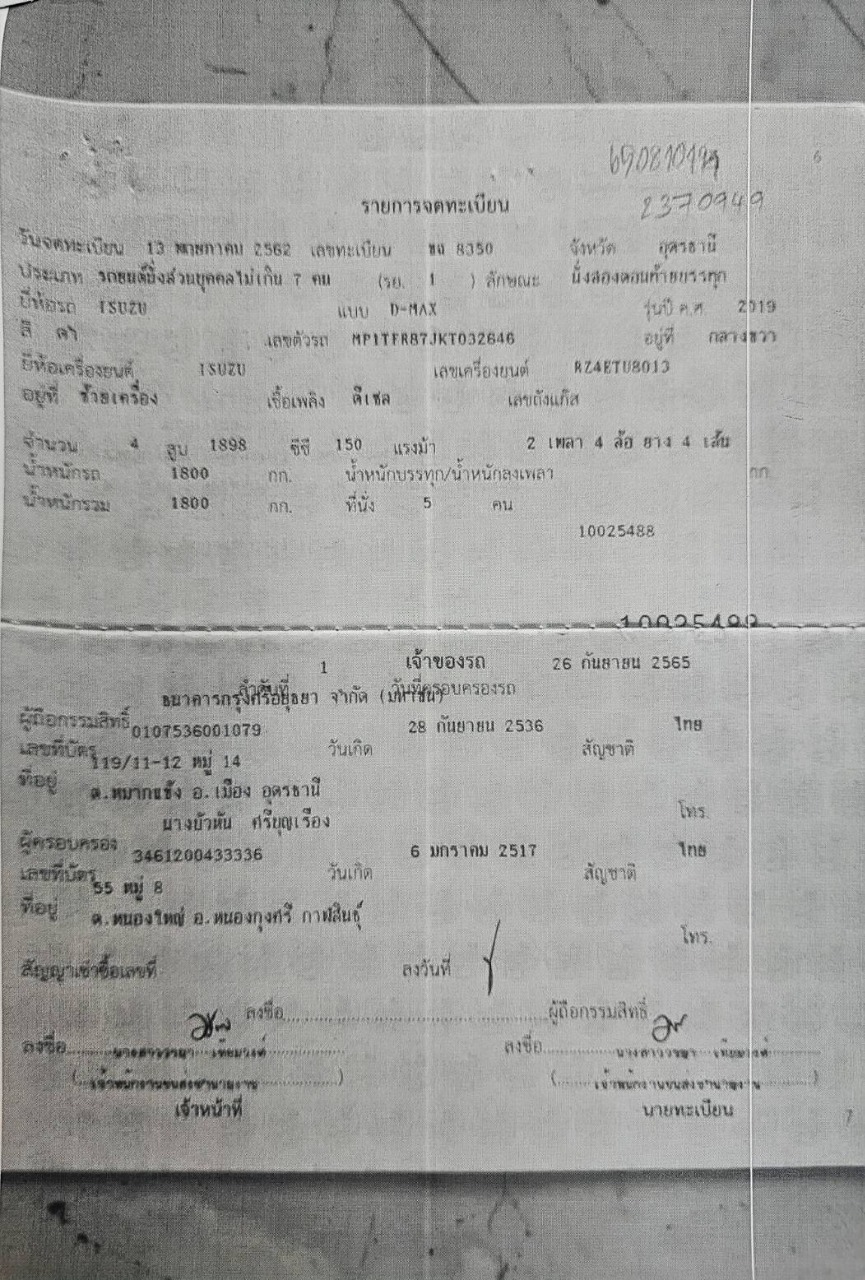 6
2370949
รายการจดทะเบียน
วันจดทะเบียน 13 พฤษภาคม 2562 เลขทะเบียน 8350 จังหวัด อุดรธานี
ประเภท รถยนต์นั่งส่วนบุคคลไม่เกิน 7 คน (รย. 1 ) ลักษณะ นั่งสองตอนท้ายบรรทุก
ยี่ห้อรถ ISUZU แบบ D-MAX รุ่นปี ค.ศ. 2019
สี ดำ เลขตัวรถ MP1TFR87JKT032646 อยู่ที่ กลางขวา
ยี่ห้อเครื่องยนต์ ISUZU เลขเครื่องยนต์ RZ4ETU8013
อยู่ที่ ซ้ายเครื่อง เชื้อเพลิง ดีเซล เลขถังแก๊ส
จำนวน 4 สูบ 1898 ซีซี 150 แรงม้า 2 เพลา 4 ล้อ ยาง 4 เส้น
น้ำหนักรถ 1800 กก. น้ำหนักบรรทุก/น้ำหนักลงเพลา กก.
น้ำหนักรวม 1800 กก. ที่นั่ง 5 คน
10025488
10025488
1 เจ้าของรถ 26 กันยายน 2565
ลำดับที่ วันที่ครอบครองรถ
ธนาคารกรุงศรีอยุธยา จำกัด (มหาชน)
ผู้ถือกรรมสิทธิ์
0107536001079 28 กันยายน 2536 ไทย
เลขที่บัตร วันเกิด สัญชาติ
119/11-12 หมู่ 14
ที่อยู่
ต.หมากแข้ง อ.เมือง อุดรธานี
โทร.
นางบัวหัน ศรีบุญเรือง
ผู้ครอบครอง
3461200433336 6 มกราคม 2517 ไทย
เลขที่บัตร วันเกิด สัญชาติ
55 หมู่ 8
ที่อยู่
ต.หนองใหญ่ อ.หนองกุงศรี กาฬสินธุ์
โทร.
สัญญาเช่าซื้อเลขที่ ลงวันที่
ลงชื่อ ผู้ถือกรรมสิทธิ์
ลงชื่อ ลงชื่อ
(เจ้าพนักงานขนส่งชำนาญงาน) (เจ้าพนักงานขนส่งชำนาญงาน)
เจ้าหน้าที่ นายทะเบียน
7